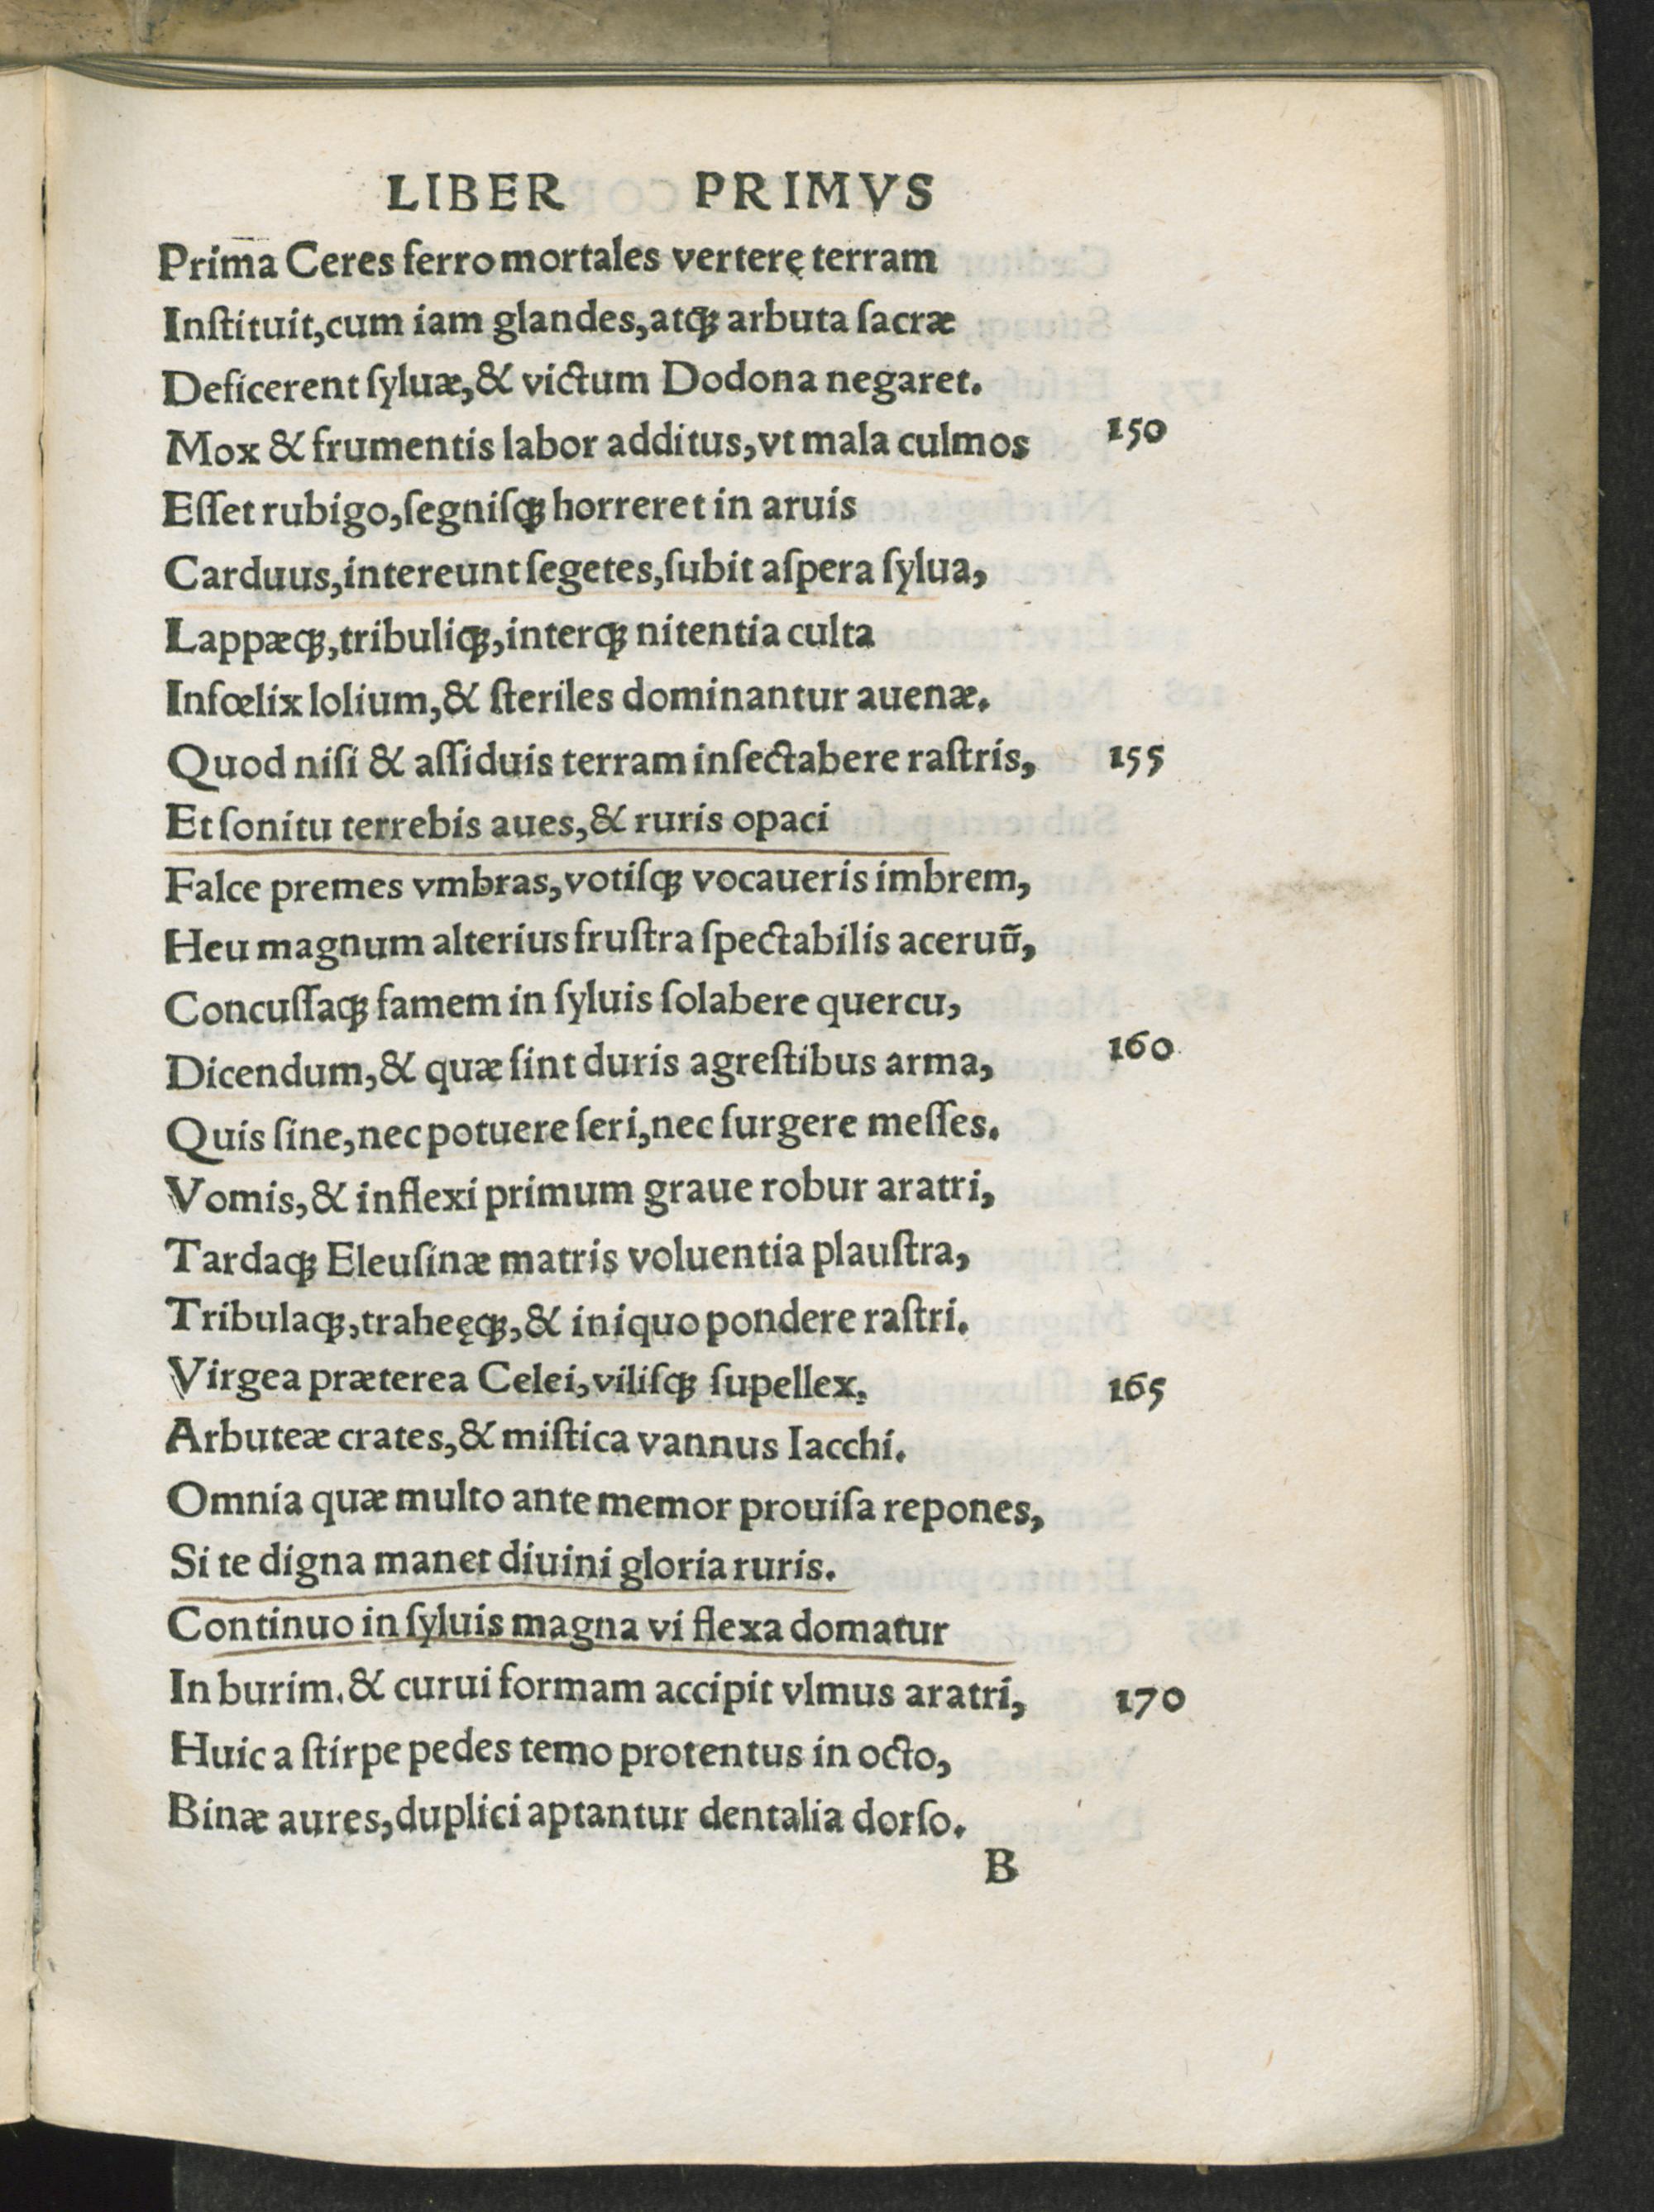 LIBER PRIMVS
Prima Ceres ferro mortales vertere̜ terram
Inſtituit,cum iam glandes,atqꝫ arbuta ſacræ
Deficerent ſyluæ,& victum Dodona negaret.
Mox & frumentis labor additus,vt mala culmos 150
Eſſet rubigo,ſegniſqꝫ horreret in aruis
Carduus,intereunt ſegetes,ſubit aſpera ſylua,
Lappæqꝫ,tribuliqꝫ,interqꝫ nitentia culta
Infœlix lolium,& ſteriles dominantur auenæ.
Quod niſi & aſſiduis terram inſectabere raſtris, 155
Et ſonitu terrebis aues,& ruris opaci
Falce premes vmbras,votiſqꝫ vocaueris imbrem,
Heu magnum alterius fruſtra ſpectabilis aceruū,
Concuſſaqꝫ famem in ſyluis ſolabere quercu,
Dicendum,& quæ ſint duris agreſtibus arma, 160
Quis ſine,nec potuere ſeri,nec ſurgere meſſes.
Vomis,& inflexi primum graue robur aratri,
Tardaqꝫ Eleuſinæ matris voluentia plauſtra,
Tribulaqꝫ,traheęqꝫ,& iniquo pondere raſtri.
Virgea præterea Celei,viliſqꝫ ſupellex, 165
Arbuteæ crates,& miſtica vannus Iacchi.
Omnia quæ multo ante memor prouiſa repones,
Si te digna manet diuini gloria ruris.
Continuo in ſyluis magna vi flexa domatur
In burim.& curui formam accipit vlmus aratri, 170
Huic a ſtirpe pedes temo protentus in octo,
Binæ aures,duplici aptantur dentalia dorſo.
B